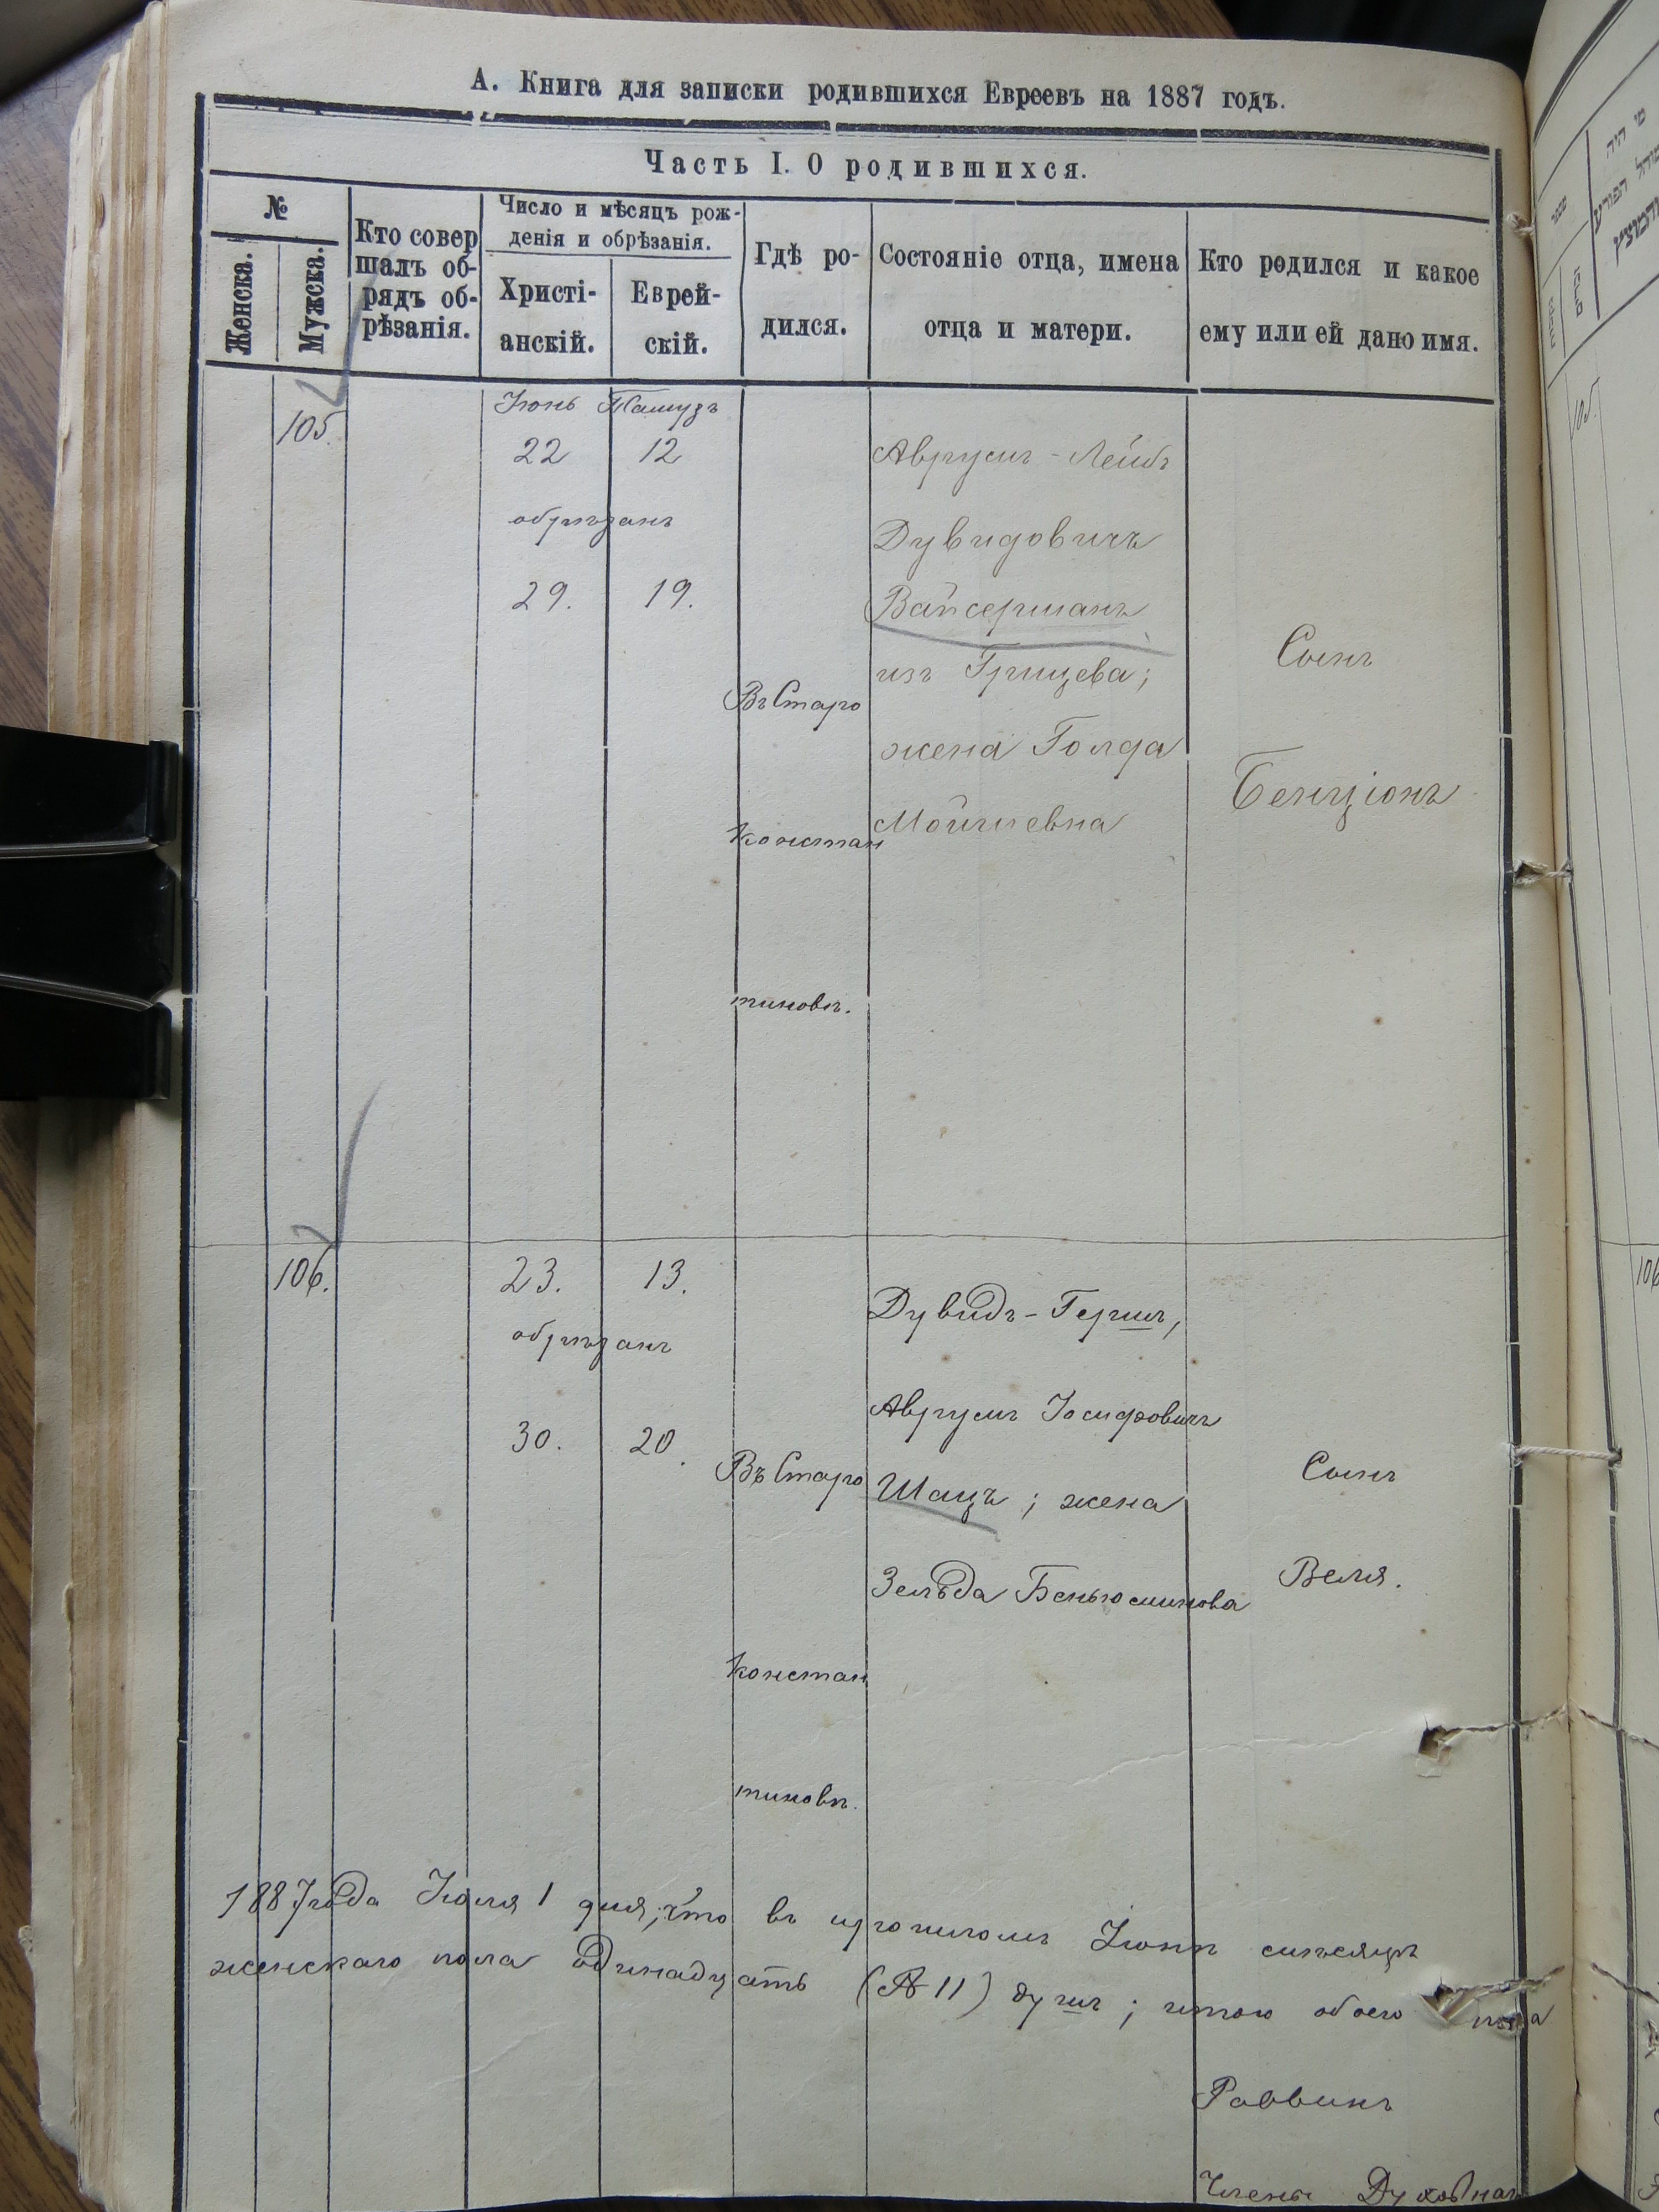 А. Книга для записки родившихся Евреевъ на 1887 годъ.
Часть I. О родившихся.
№
Женска.
Мужска.
Кто совер
шалъ об-
рядъ об-
рѣзанія.
Число и мѣсяцъ рож-
денія и обрѣзанія.
Христі-
анскій.
Еврей-
скій.
Гдѣ ро-
дился.
Состояніе отца, имена
отца и матери.
Кто родился и какое
ему или ей дано имя.
105.
Іюнь Тамузъ
22 12
обрѣзанъ
29. 19.
Въ Старо
констан
тиновѣ.
Аврумъ-Лейбъ
Дувидовичъ
Вайсерманъ
изъ Грицева;
жена Голда
Мойшевна
Сынъ
Бенціонъ
106.
23. 13.
обрѣзанъ
30. 20.
Въ Старо
констан
тиновѣ.
Дувидъ-Гершъ,
Аврумъ Іосифовичъ
Шацъ; жена
Зельда Беньюминова
Сынъ
Веля.
1887 года Іюля 1 дня, что въ прошломъ Іюнѣ мѣсяцѣ
женскаго пола одинадцать (№ 11) душъ; итого обоего пола
Раввинъ
Члены Духовнаг
105.
106